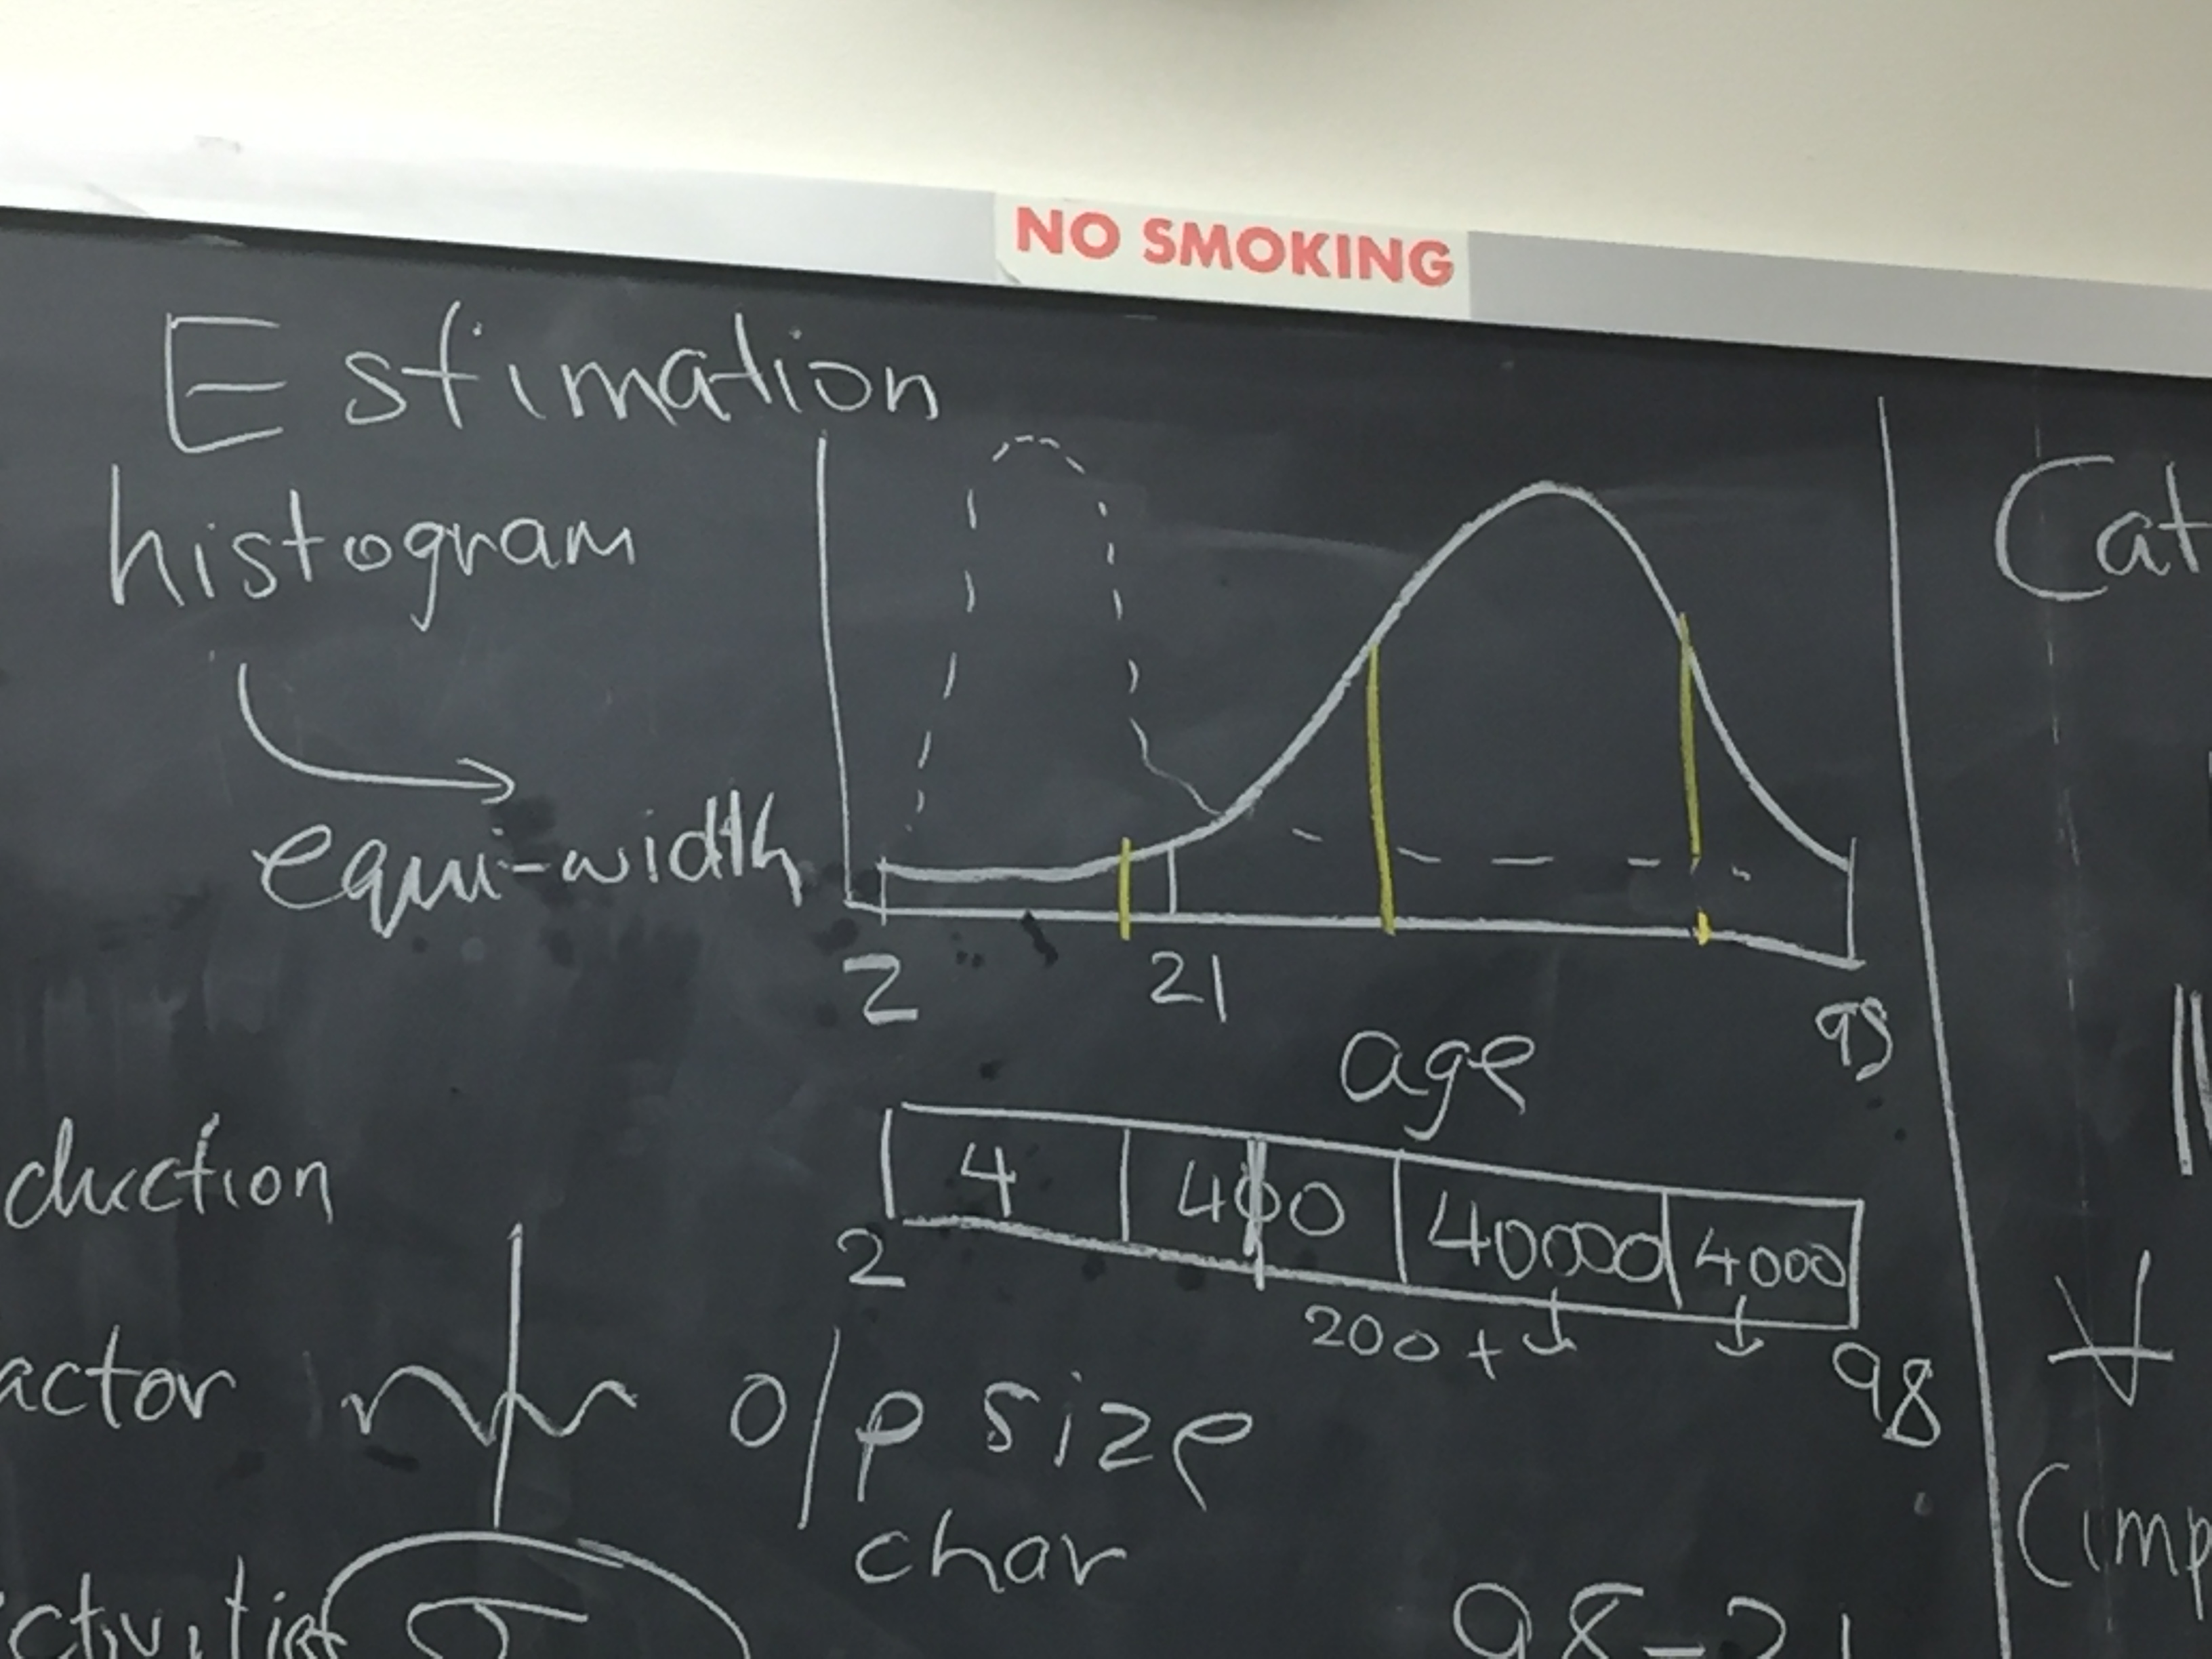 NO SMOKING
Estimation
histogram
equi-width
2 21 98
age
4 400 40000 4000
2 200 + 98
duction
actor
o/p size
char
ctivities
σ
98-21
Cat
∀
(imp